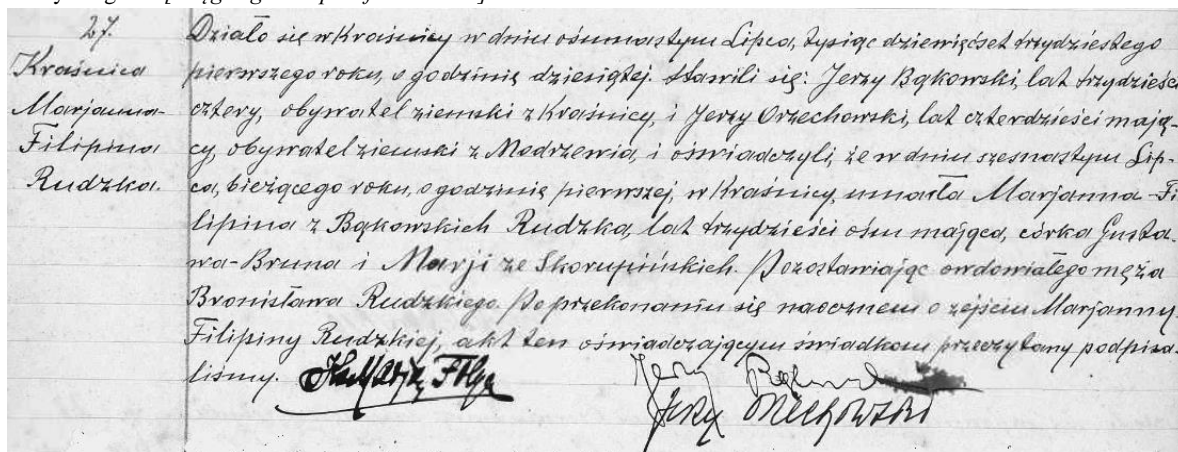 27.
Kraśnica
Marjanna-
Filipina
Rudzka.
Działo się w Kraśnicy w dniu ośmnastym Lipca, tysiąc dziewięćset trzydziestego
pierwszego roku, o godzinie dziesiątej. Stawili się: Jerzy Bąkowski, lat trzydzieści
cztery, obywatel ziemski z Kraśnicy, i Jerzy Orzechowski, lat czterdzieści mają-
cy, obywatel ziemski z Modrzewia, i oświadczyli, że w dniu szesnastym Lip-
ca, bieżącego roku, o godzinie pierwszej, w Kraśnicy, umarła Marjanna-Fi
lipina z Bąkowskich Rudzka, lat trzydzieści ośm mająca, córka Gusta-
wa-Bruna i Marji ze Skorupińskich. Pozostawiając owdowiałego męża
Bronisława Rudzkiego. Po przekonaniu się naocznem o zejściu Marjanny-
Filipiny Rudzkiej, akt ten oświadczającym świadkom przeczytany podpisa-
liśmy.
Jerzy
Jerzy Orzechowski